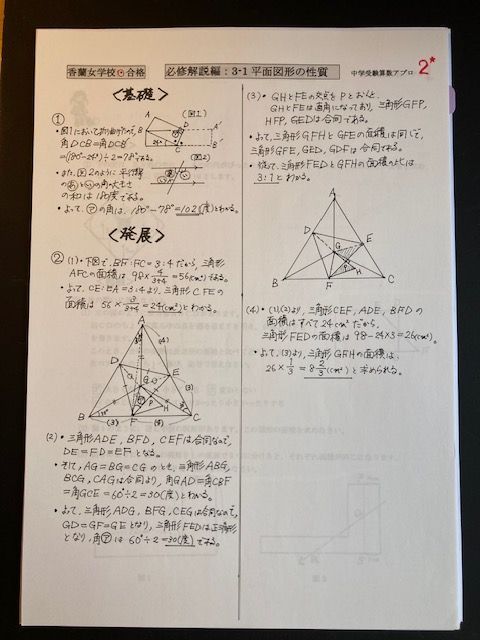 香蘭女学校⊙合格
必修解説編：3-1平面図形の性質
中学受験算数アプロ
2*
〈基礎〉
①
・図1において折り曲げたので、
角DCB=角DCB'
=(180°-24°)÷2=78°である。
・また、図2のように平行線
の角の大きさ
の和は180度である。
・よって、㋐の角は、180°-78°=102(度)とわかる。
(図1)
A
D
A'
B
C
B'
24°
(図2)
〈発展〉
② (1)・下図で、BF:FC=3:4だから、三角形
AFCの面積は 98×4/3+4=56(cm²)である。
・よって、CE:EA=3:4より、三角形CFEの
面積は 56×3/3+4=24(cm²)とわかる。
A
D
E
G
P
H
B
F
C
(3)
(4)
(2)・三角形ADE, BFD, CEFは合同なので、
DE=FD=EFとなる。
・そして、AG=BG=CGのとき、三角形ABG,
BCG, CAGは合同より、角GAD=角CBF
=角GCE=60°÷2=30(度)とわかる。
・よって、三角形ADG, BFG, CEGは合同なので、
GD=GF=GEとなり、三角形FEDは正三角形
となり、角㋐は60°÷2=30(度)である。
(3)・GHとFEの交点をPとおくと、
GHとFEは直角になっており、三角形GFP,
HFP, GEDは合同である。
・よって、三角形GFHとGFEの面積は同じで、
三角形GFE, GED, GDFは合同である。
・従って、三角形FEDとGFHの面積の比は
3:1とわかる。
A
D
E
G
P
H
B
F
C
(4)・(1),(2)より、三角形CEF, ADE, BFDの
面積はすべて24cm²だから、
三角形FEDの面積は 98-24×3=26(cm²)
・よって、(3)より、三角形GFHの面積は、
26×1/3=8 2/3(cm²)と求められる。